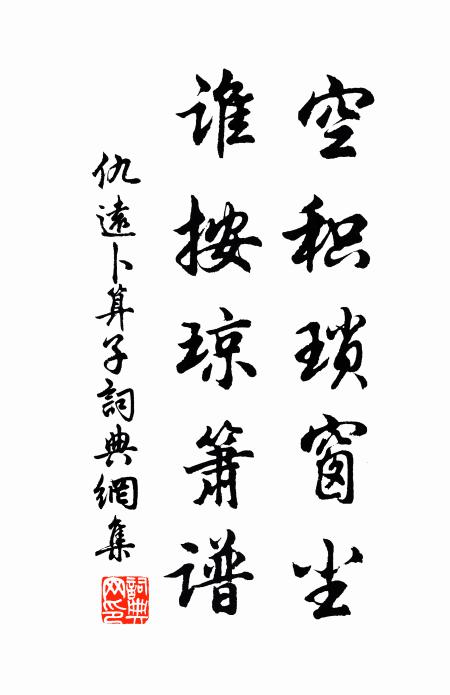 空积琐窗尘
谁按琼箫谱
仇遠卜算子詞典網集
詞典
网印